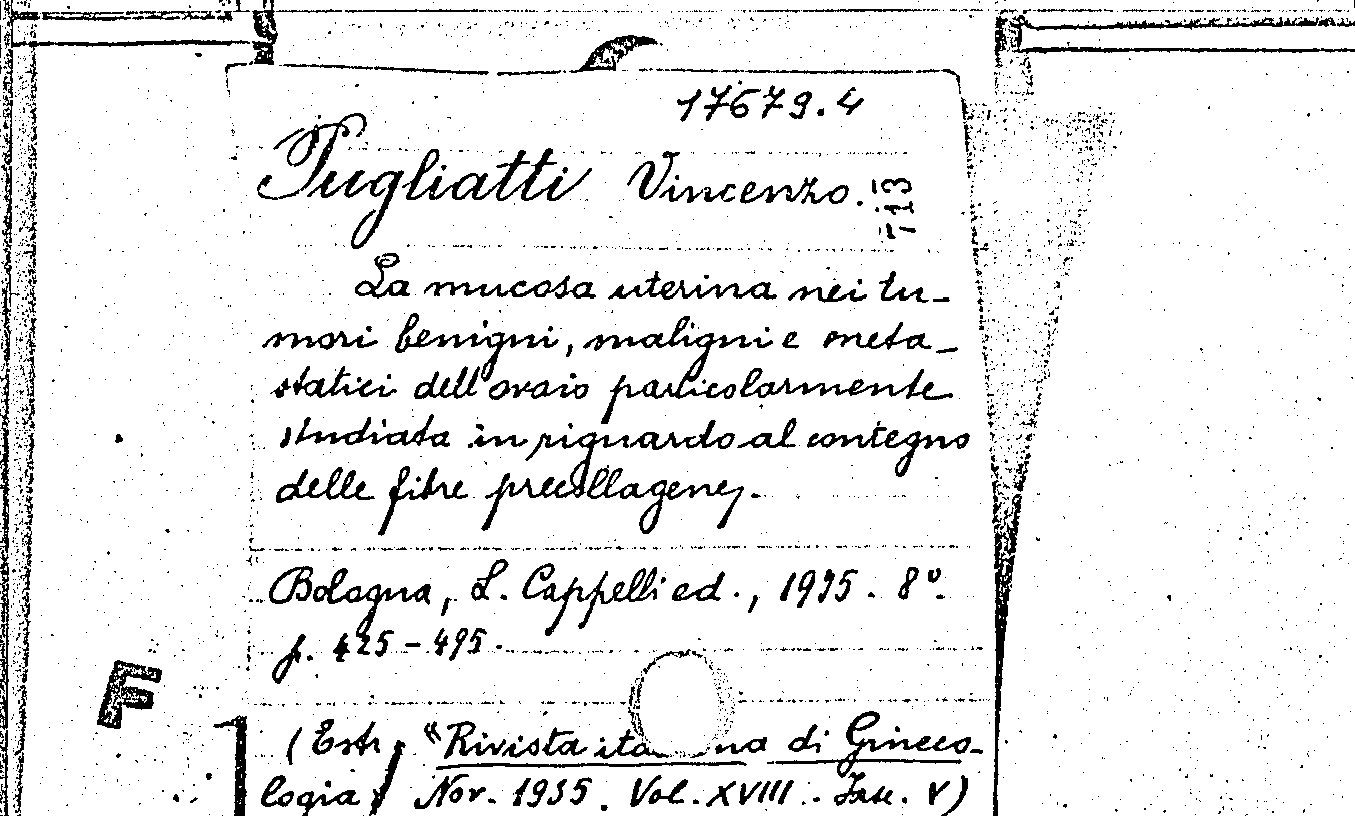 17679.4
Pugliatti Vincenzo.
713
La mucosa uterina nei tu-
mori benigni, maligni e meta-
statici dell'ovaio particolarmente
studiata in riguardo al contegno
delle fibre precollagene,.
Bologna, L. Cappelli ed., 1935. 8º.
p. 425-495.
F
(Estr. "Rivista ita na di Gineco-
logia, Nov. 1935. Vol. XVIII.. Fasc. V)